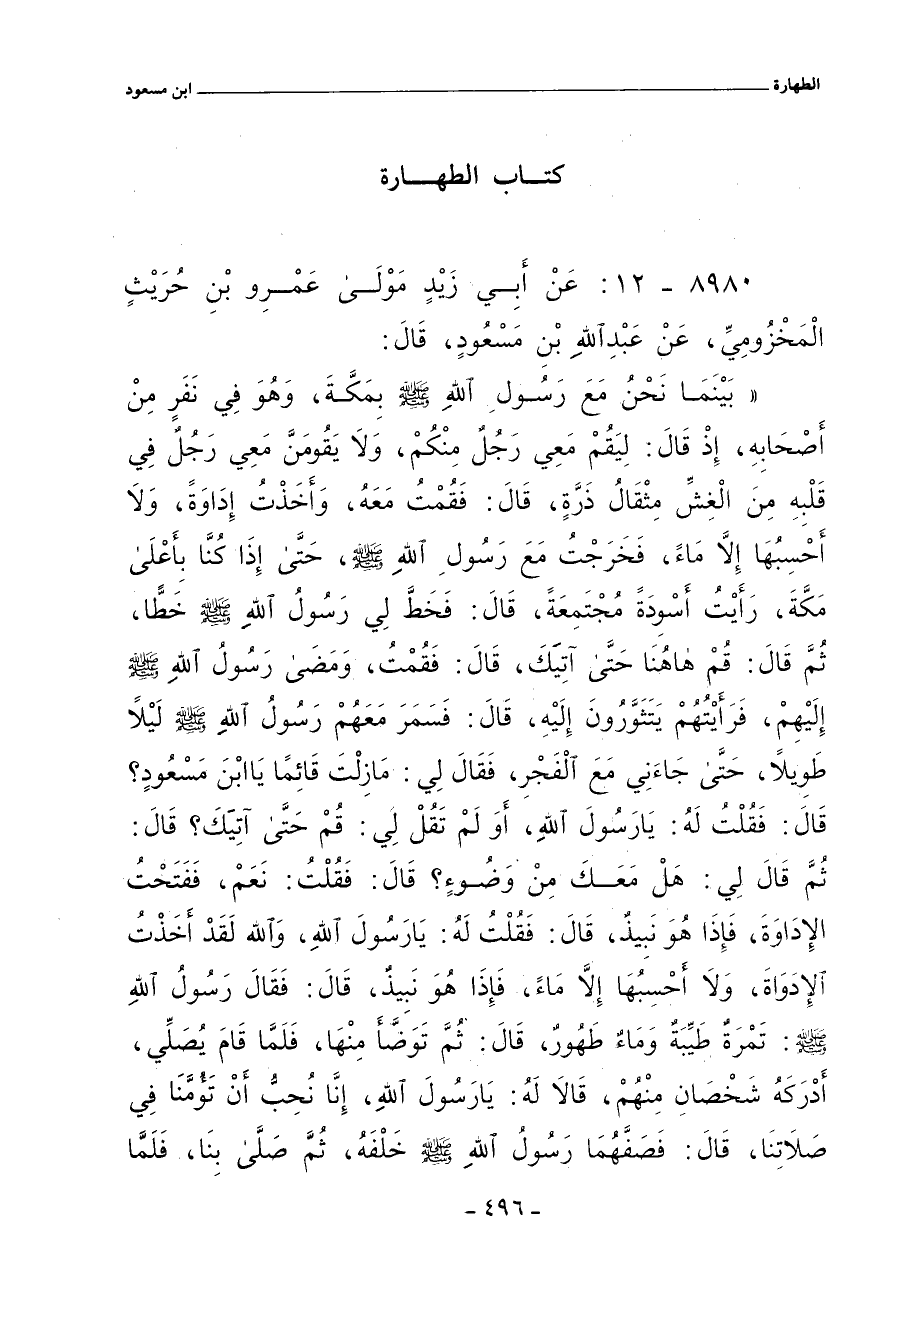 الطهارة ـــــــ ابن مسعود
كتـــاب الطهـــارة
٨٩٨٠ ـ ١٢ : عَنْ أَبِــي زَيْدٍ مَوْلَــىٰ عَمْــرِو بْنِ حُرَيْثٍ
الْمَخْزُومِيِّ، عَنْ عَبْدِاللهِ بْنِ مَسْعُودٍ، قَالَ:
« بَيْنَمَــا نَحْنُ مَعَ رَسُــولِ اللهِ ﷺ بِمَكَّــةَ، وَهُوَ فِي نَفَرٍ مِنْ
أَصْحَابِهِ، إِذْ قَالَ: لِيَقُمْ مَعِي رَجُلٌ مِنْكُمْ، وَلَا يَقُومَنَّ مَعِي رَجُلٌ فِي
قَلْبِهِ مِنَ الْغِشِّ مِثْقَالُ ذَرَّةٍ، قَالَ: فَقُمْتُ مَعَهُ، وَأَخَذْتُ إِدَاوَةً، وَلَا
أَحْسِبُهَا إِلَّا مَاءً، فَخَرَجْتُ مَعَ رَسُولِ اللهِ ﷺ، حَتَّىٰ إِذَا كُنَّا بِأَعْلَىٰ
مَكَّةَ، رَأَيْتُ أَسْوِدَةً مُجْتَمِعَةً، قَالَ: فَخَطَّ لِي رَسُولُ اللهِ ﷺ خَطًّا،
ثُمَّ قَالَ: قُمْ هٰاهُنَا حَتَّىٰ آتِيَكَ، قَالَ: فَقُمْتُ، وَمَضَىٰ رَسُولُ اللهِ ﷺ
إِلَيْهِمْ، فَرَأَيْتُهُمْ يَتَثَوَّرُونَ إِلَيْهِ، قَالَ: فَسَمَرَ مَعَهُمْ رَسُولُ اللهِ ﷺ لَيْلًا
طَوِيلًا، حَتَّىٰ جَاءَنِي مَعَ الْفَجْرِ، فَقَالَ لِي: مَازِلْتَ قَائِمًا يَاابْنَ مَسْعُودٍ؟
قَالَ: فَقُلْتُ لَهُ: يَارَسُولَ اللهِ، أَوَ لَمْ تَقُلْ لِي: قُمْ حَتَّىٰ آتِيَكَ؟ قَالَ:
ثُمَّ قَالَ لِي: هَلْ مَعَــكَ مِنْ وَضُــوءٍ؟ قَالَ: فَقُلْتُ: نَعَمْ، فَفَتَحْتُ
الإِدَاوَةَ، فَإِذَا هُوَ نَبِيذٌ، قَالَ: فَقُلْتُ لَهُ: يَارَسُولَ اللهِ، وَاللهِ لَقَدْ أَخَذْتُ
الإِدَوَاةَ، وَلَا أَحْسِبُهَا إِلَّا مَاءً، فَإِذَا هُوَ نَبِيذٌ، قَالَ: فَقَالَ رَسُولُ اللهِ
ﷺ: تَمْرَةٌ طَيِّبَةٌ وَمَاءٌ طَهُورٌ، قَالَ: ثُمَّ تَوَضَّأَ مِنْهَا، فَلَمَّا قَامَ يُصَلِّي،
أَدْرَكَهُ شَخْصَانِ مِنْهُمْ، قَالَا لَهُ: يَارَسُولَ اللهِ، إِنَّا نُحِبُّ أَنْ تَؤُمَّنَا فِي
صَلَاتِنَا، قَالَ: فَصَفَّهُمَا رَسُولُ اللهِ ﷺ خَلْفَهُ، ثُمَّ صَلَّىٰ بِنَا، فَلَمَّا
ـ ٤٩٦ ـ